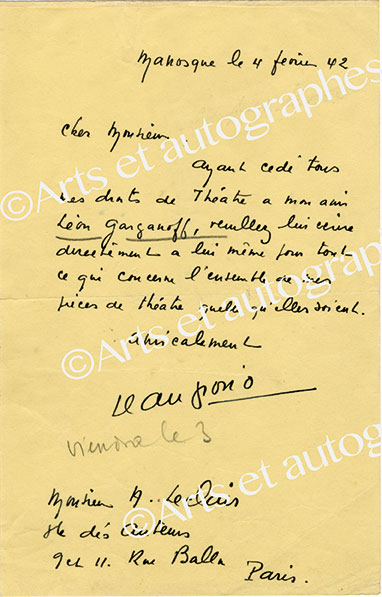 Manosque le 4 février 42
Cher Monsieur
Ayant cédé tous
mes droits de Théâtre a mon ami
Léon Garganoff, veuillez lui écrire
directement a lui même pour tout
ce qui concerne l'ensemble de mes
pièces de théâtre quelles qu'elles soient.
Amicalement
Jean Giono
viendra le 3
Monsieur A. Leclerc
Sté des Auteurs
9 et 11. Rue Ballu
Paris.
©Arts et autographes
©Arts et autographes
©Arts et autographes